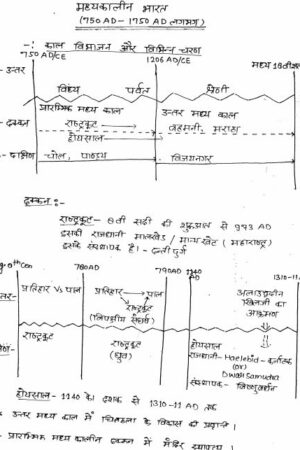 मध्यकालीन भारत
(750 AD – 1750 AD लगभग)
-: काल विभाजन और विभिन्न चरण
750 AD/CE 1206 AD/CE मध्य 18वीं
उत्तर
विंध्य पर्वत श्रेणी
प्रारम्भिक मध्य काल उत्तर मध्य काल
दक्कन राष्ट्रकूट बहमनी, मराठा
होयसाल
चोल, पाण्ड्य विजयनगर
दक्कन :-
राष्ट्रकूट – 8वीं सदी की शुरुआत से 993 AD
इसकी राजधानी मालखेड / मान्यखेट (महाराष्ट्र)
इसके संस्थापक है। - दन्तीदुर्ग
780AD 790AD 1140 AD 1310-11
प्रतिहार Vs पाल प्रतिहार पाल अलाउद्दीन
राष्ट्रकूट खिलजी का
(त्रिपक्षीय संघर्ष) आक्रमण
राष्ट्रकूट राष्ट्रकूट होयसाल
(ध्रुव) राजधानी- Halebid - कर्नाटक
(or)
Dwarsamudra
संस्थापक - विष्णुवर्धन
होयसाल- 1140 के दशक से 1310-11 AD तक
उत्तर मध्य काल में चित्रकला के विकास को
प्रारम्भिक मध्य कालीन दक्कन में मंदिर स्थापत्य